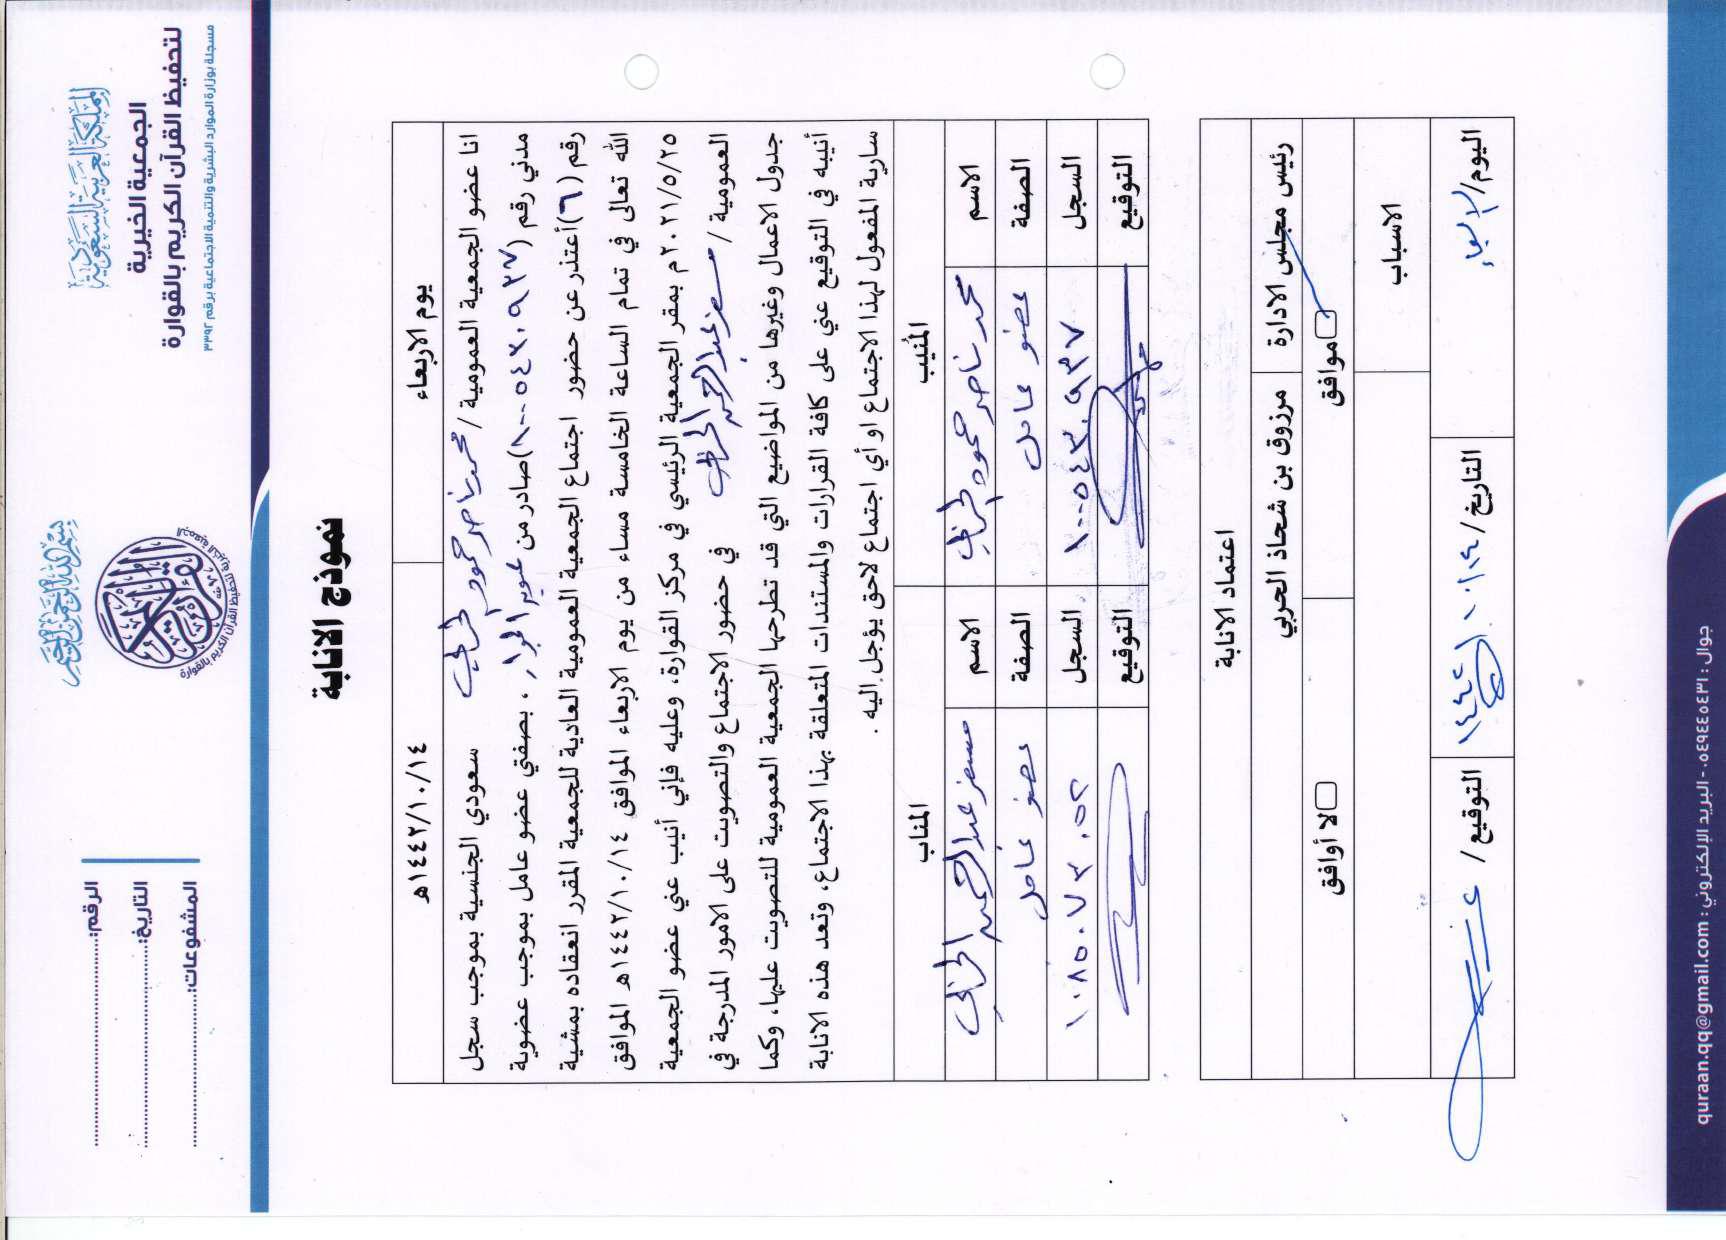 المملكة العربية السعودية
الجمعية الخيرية
لتحفيظ القرآن الكريم بالقوارة
مسجلة بوزارة الموارد البشرية والتنمية الاجتماعية برقم ٣٣٩٢
بسم الله الرحمن الرحيم
القرآن الكريم
الجمعية الخيرية لتحفيظ القرآن الكريم بالقوارة
الرقم:
التاريخ:
المشفوعات:
نموذج الانابة
يوم الاربعاء ١٤٤٢/١٠/١٤هـ
انا عضو الجمعية العمومية / محمد ناصر حمود الحربي سعودي الجنسية بموجب سجل
مدني رقم (١٠٠٥٤٣٠٩٣٧) صادر من بصفتي عضو عامل بموجب عضوية
رقم (٦) أعتذر عن حضور اجتماع الجمعية العمومية العادية للجمعية المقرر انعقاده بمشية
الله تعالى في تمام الساعة الخامسة مساء من يوم الاربعاء الموافق ١٤٤٢/١٠/١٤هـ الموافق
٢٠٢١/٥/٢٥م بمقر الجمعية الرئيسي في مركز القوارة، وعليه فإني أنيب عني عضو الجمعية
العمومية / عبدالرحمن الحربي في حضور الاجتماع والتصويت على الامور المدرجة في
جدول الاعمال وغيرها من المواضيع التي قد تطرحها الجمعية العمومية للتصويت عليها، وكما
أنيبه في التوقيع عني على كافة القرارات والمستندات المتعلقة بهذا الاجتماع، وتعد هذه الانابة
سارية المفعول لهذا الاجتماع او أي اجتماع لاحق يؤجل اليه.
المنيب المناب
الاسم محمد ناصر حمود الحربي الاسم عبدالرحمن الحربي
الصفة عضو عامل الصفة عضو عامل
السجل ١٠٠٥٤٣٠٩٣٧ السجل
التوقيع التوقيع
اعتماد الانابة
رئيس مجلس الادارة مرزوق بن شحاذ الحربي
موافق لا أوافق
الاسباب
اليوم/ الاربعاء التاريخ/ التوقيع/
جوال : ٠٥٤٩٤٤٥٤٣١ - البريد الإلكتروني : quraan.qq@gmail.com